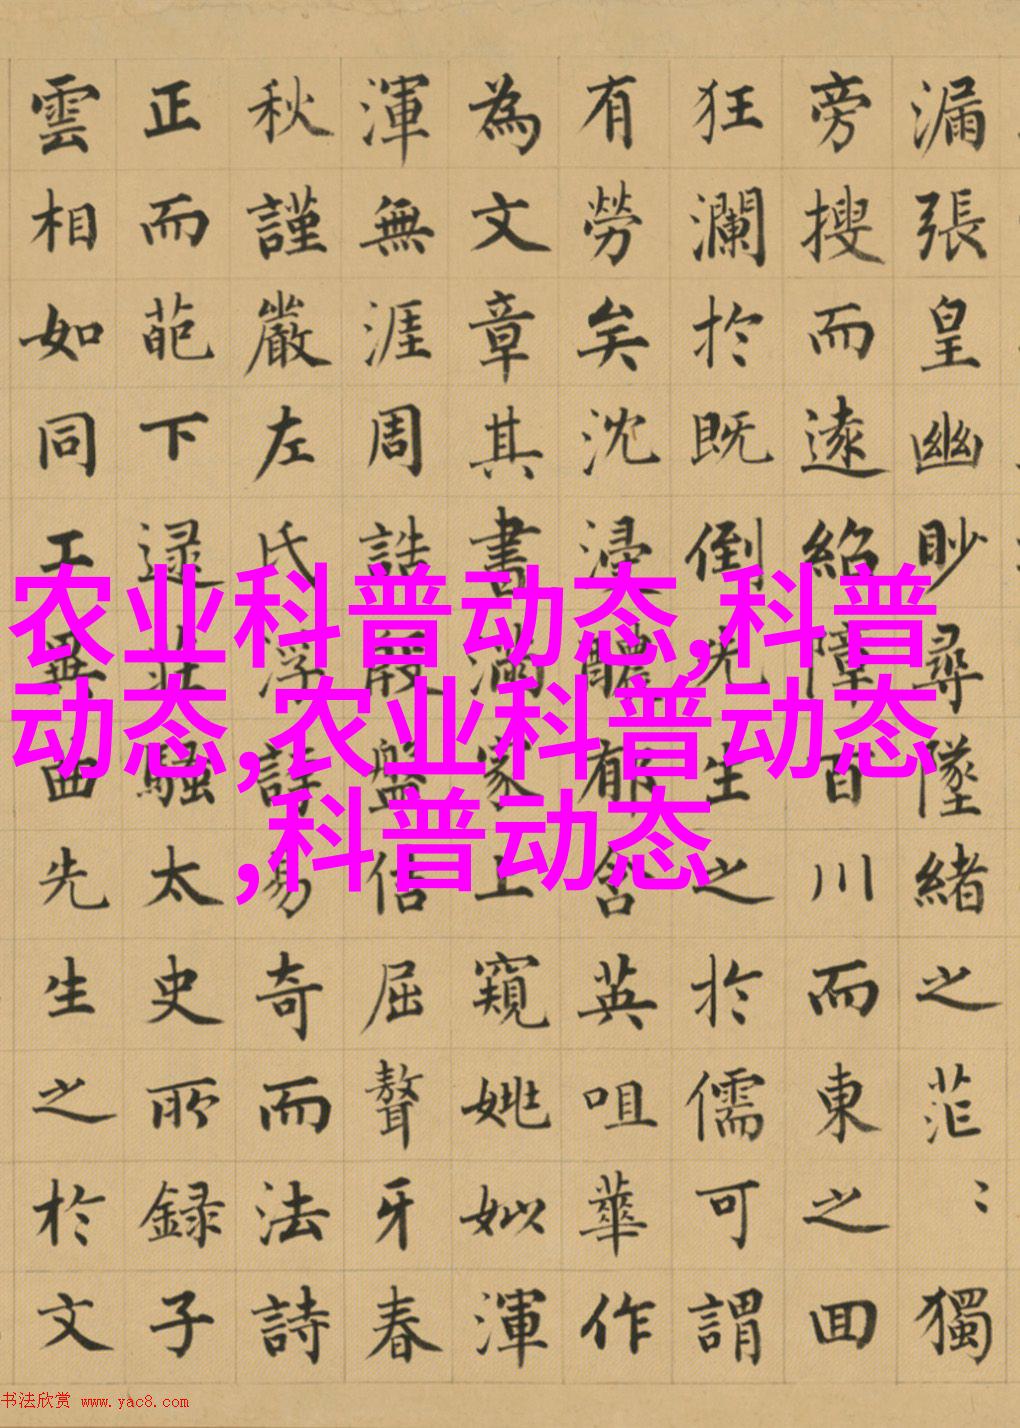 漏張皇幽眇尋墜緒之茫〻獨
旁搜而遠紹障百川而東之回
狂瀾於既倒先生之於儒可謂
有勞矣沈浸醲郁含英咀華作
為文章其書滿家上窺姚姒渾
渾無涯周誥殷盤佶屈聱牙春
秋謹嚴左氏浮誇易奇而法詩
正而葩下逮莊騷太史所録子
雲相如同工異曲先生之於文
农业科普动态,科普
动态,农业科普动态
,科普动态
书法欣赏 www.yac8.com